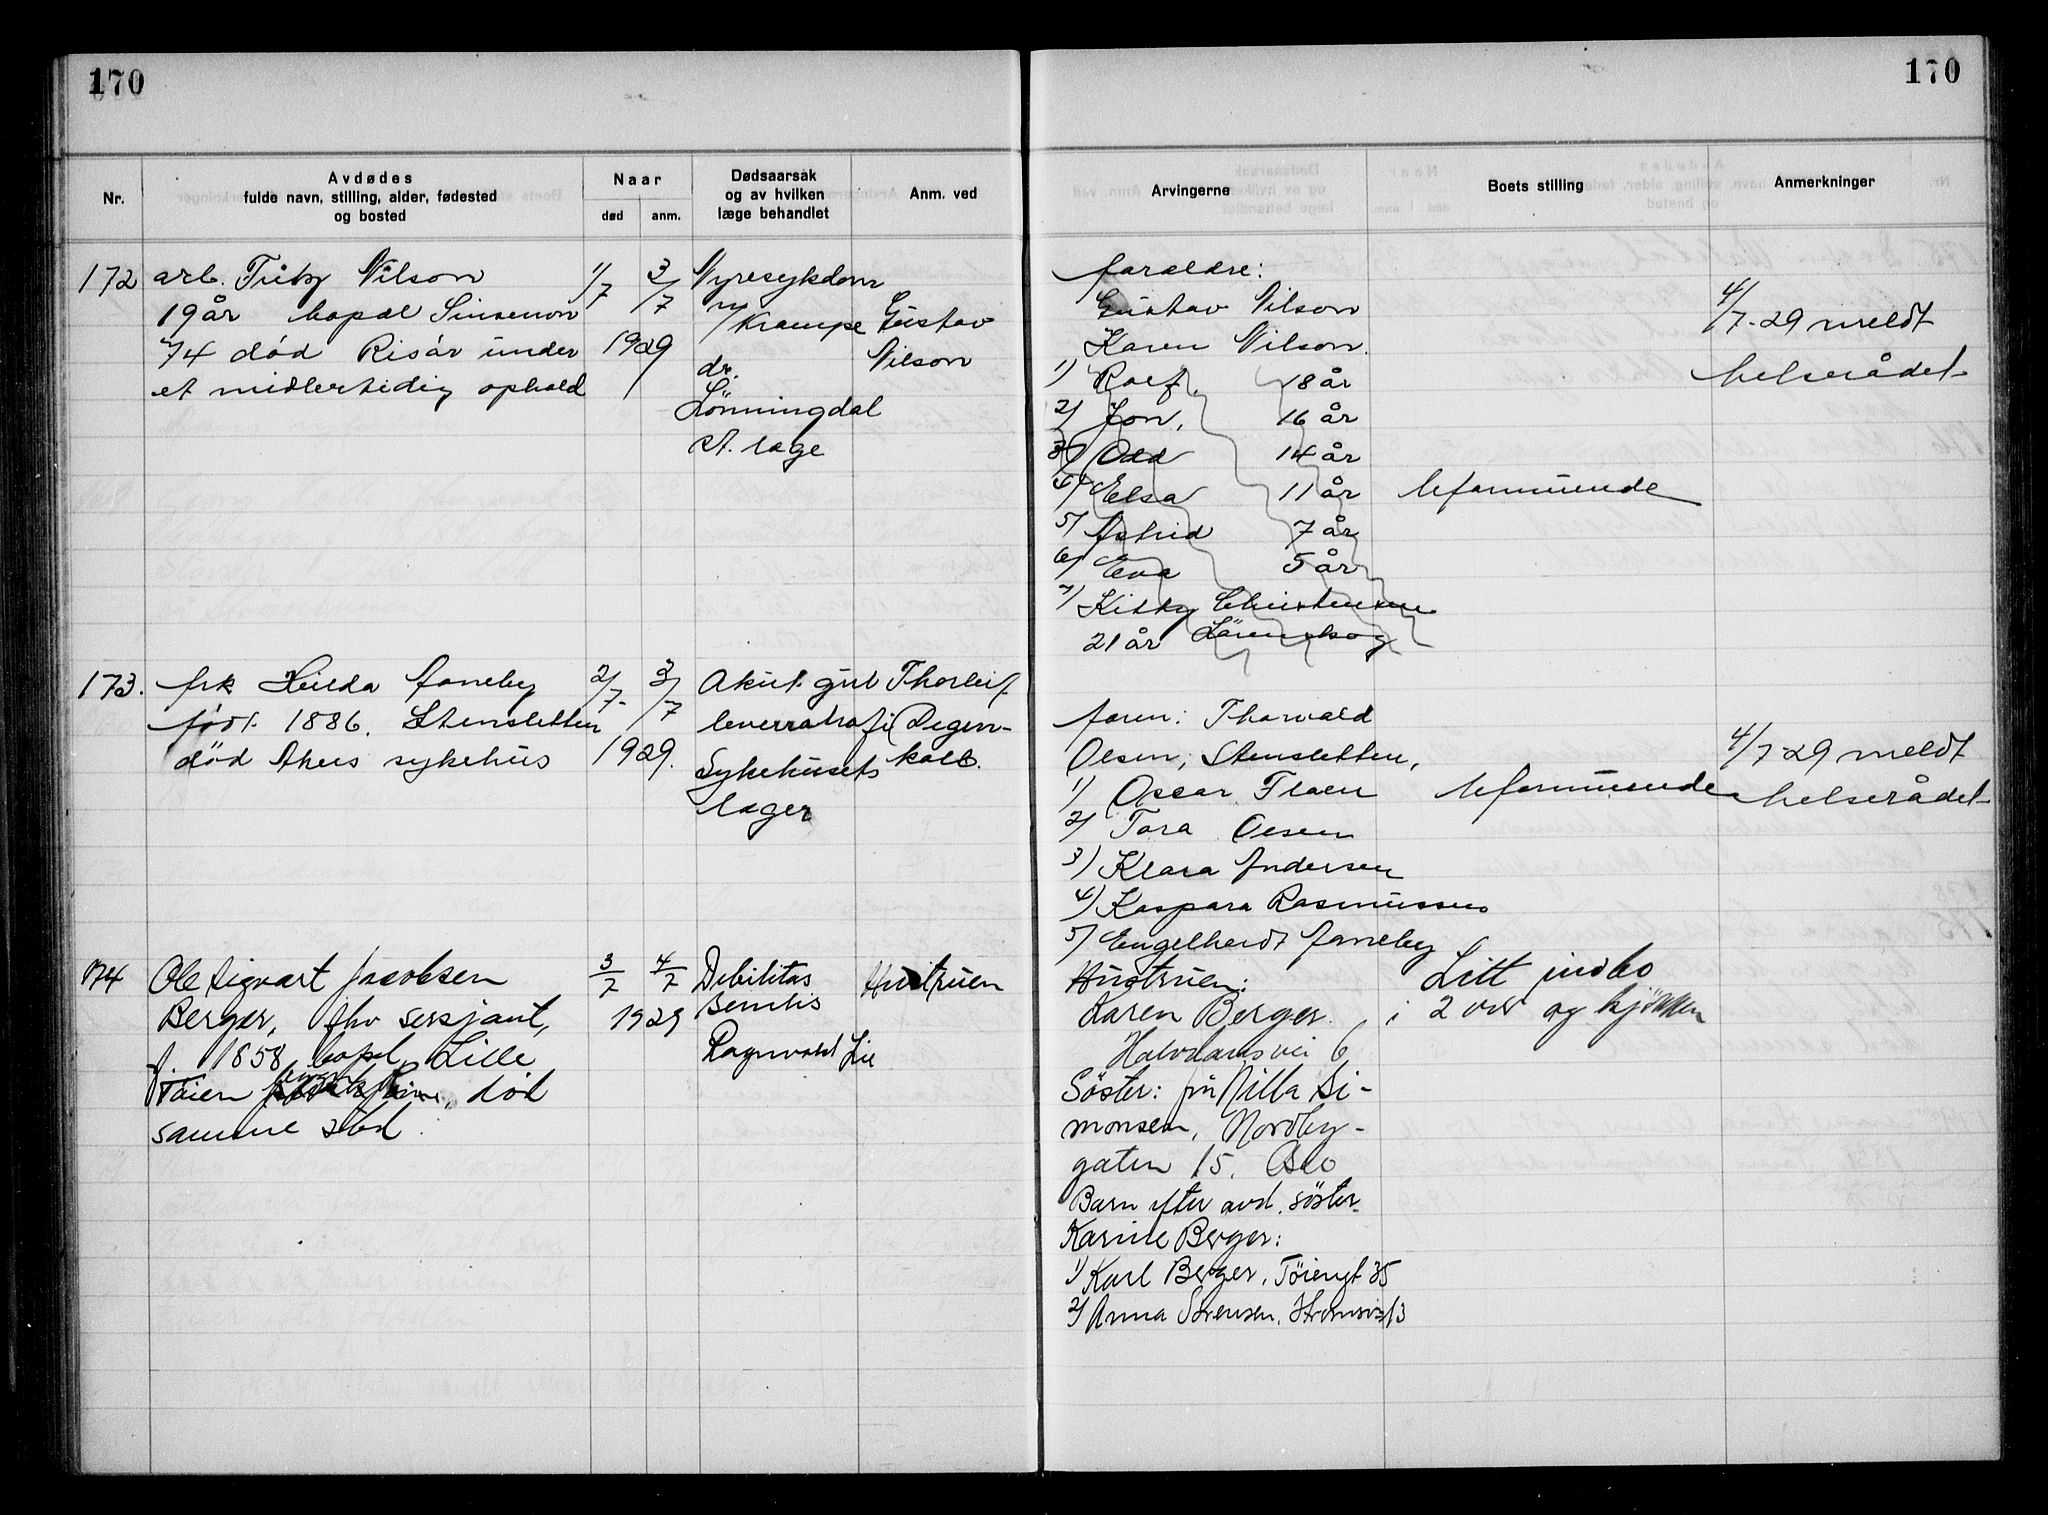 170
170
Nr.
Avdødes
fulde navn, stilling, alder, fødested
og bosted
Naar
død
anm.
Dødsaarsak
og av hvilken
læge behandlet
Anm. ved
Arvingerne
Boets stilling
Anmerkninger
172
arb. Nilson
19 år bopæl
74 død Risør under
et midlertidig ophold
1/7 3/7
1929
Nyresykdom
m/ Krampe
dr.
Lönningdal
st. læge
Gustav
Nilson
forældre:
Gustav Nilson
Karen Nilson.
1) Rolf, 18 år
2) Jon, 16 år
3) Odd 14 år
4) Elsa 11 år
5) Astrid 7 år
6) Eva 5 år
7) Kitty Christensen
21 år Lörenskog
uformuende
4/7-29 meldt
helserådet
173.
frk Hilda Janeby
født 1886. Stensletten
død Akers sykehus
2/7- 3/7
1929.
Akut gul
leveratrofi
Sykehusets
læger
Thorleif
Degen-
kolb.
faren: Thorvald
Olsen, Stensletten,
1) Oscar Floen
2) Tora Olsen
3) Klara Andersen
4) Kaspara Rasmussen
5) Engelhardt Janeby
uformuende
4/7-29 meldt
helserådet
174
Ole Sigvart Jacobsen
Berger, fhv sersjant,
f. 1858 bopl. Lille
Töien død
samme sted.
3/7 4/7
1929
Debilitas
senilis
Ragnvald Lie
Hustruen
Hustruen:
Karen Berger.
Halvdansvei 6
Søster: fru Nilla Si-
monsen, Nordby-
gaten 15. Oslo
Barn efter avd. søster
Karine Berger:
1) Karl Berger, Töiengt 35
2) Anna Sörensen, Strömsv. 13
Litt indbo
i 2 vær og kjökken